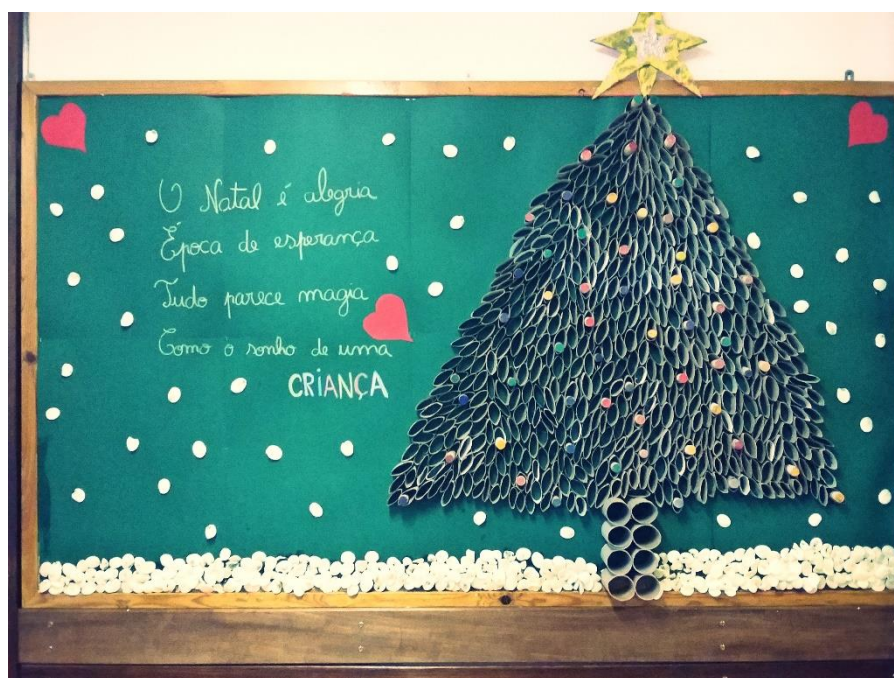 O Natal é alegria
Época de esperança
Tudo parece magia
Como o sonho de uma
CRiANÇA